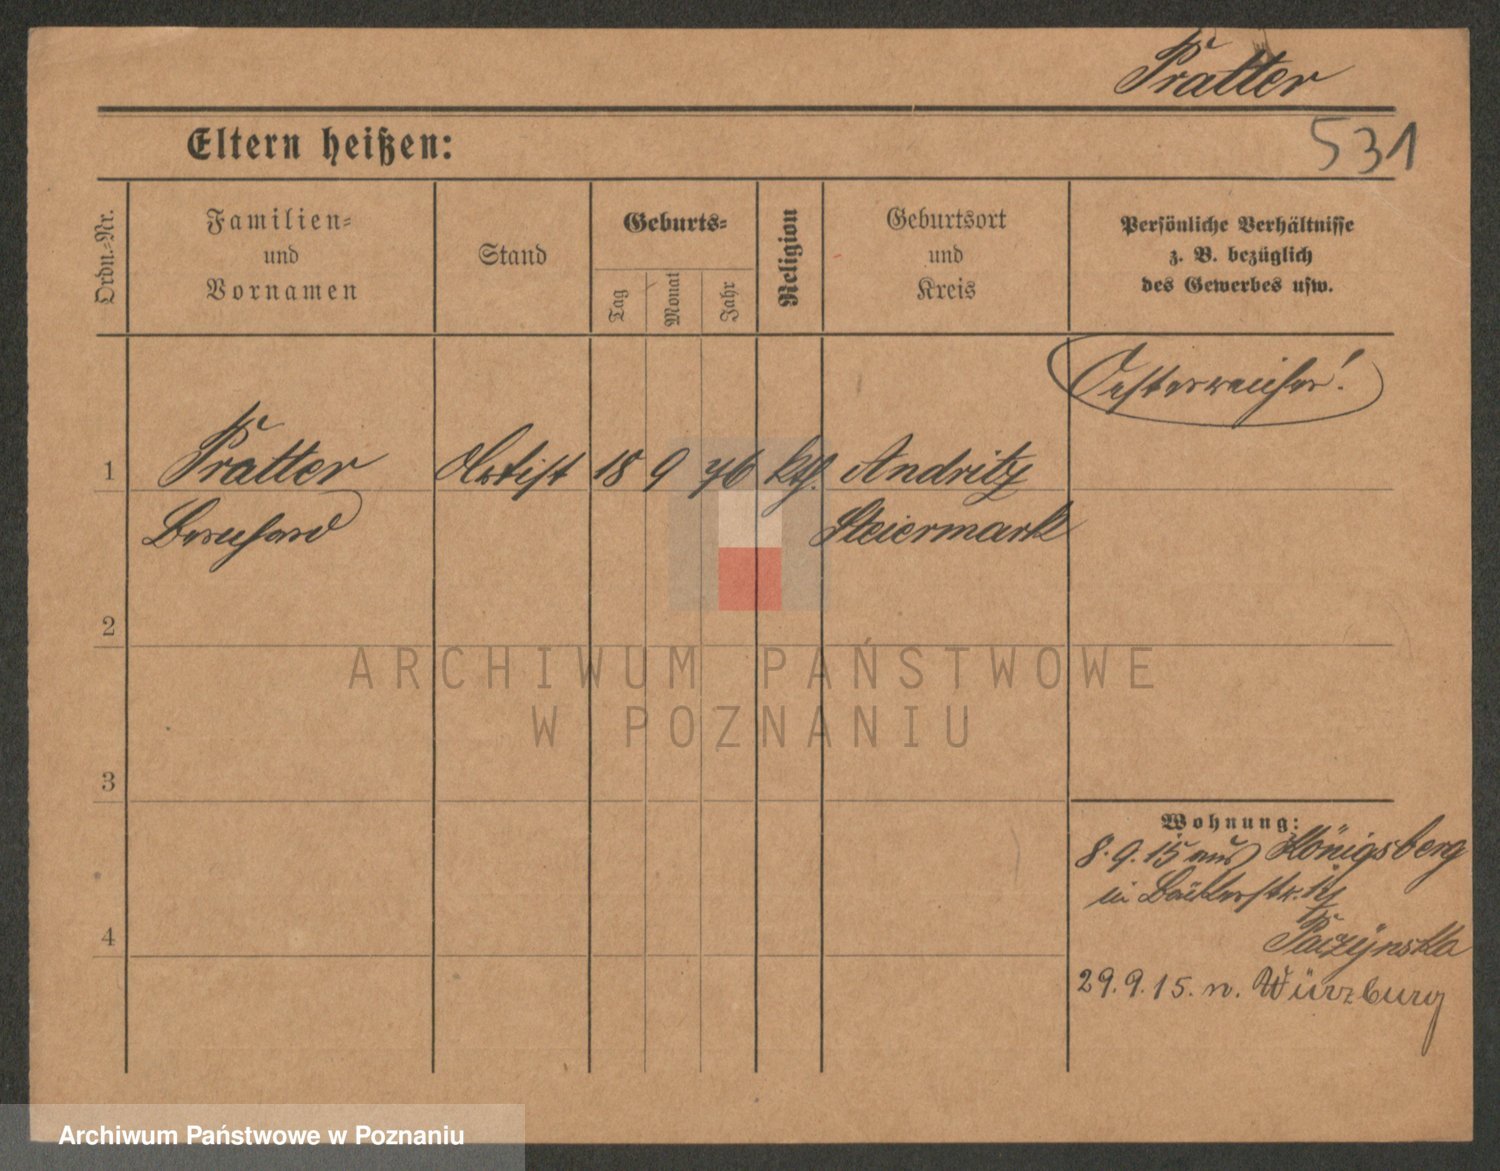 Pratter
Eltern heißen:
531
Ordn.-Nr.
Familien-
und
Vornamen
Stand
Geburts-
Tag
Monat
Jahr
Religion
Geburtsort
und
Kreis
Persönliche Verhältnisse
z. B. bezüglich
des Gewerbes usw.
Oesterreicher!
1
Pratter
Artist
18
9
76
kth.
Andritz
Bernhard
Steiermark
2
ARCHIWUM PAŃSTWOWE
W POZNANIU
3
Wohnung:
8.9.15 aus Königsberg
in Bäckerstr.
4
Paczynska
29.9.15. n. Würzburg
Archiwum Państwowe w Poznaniu